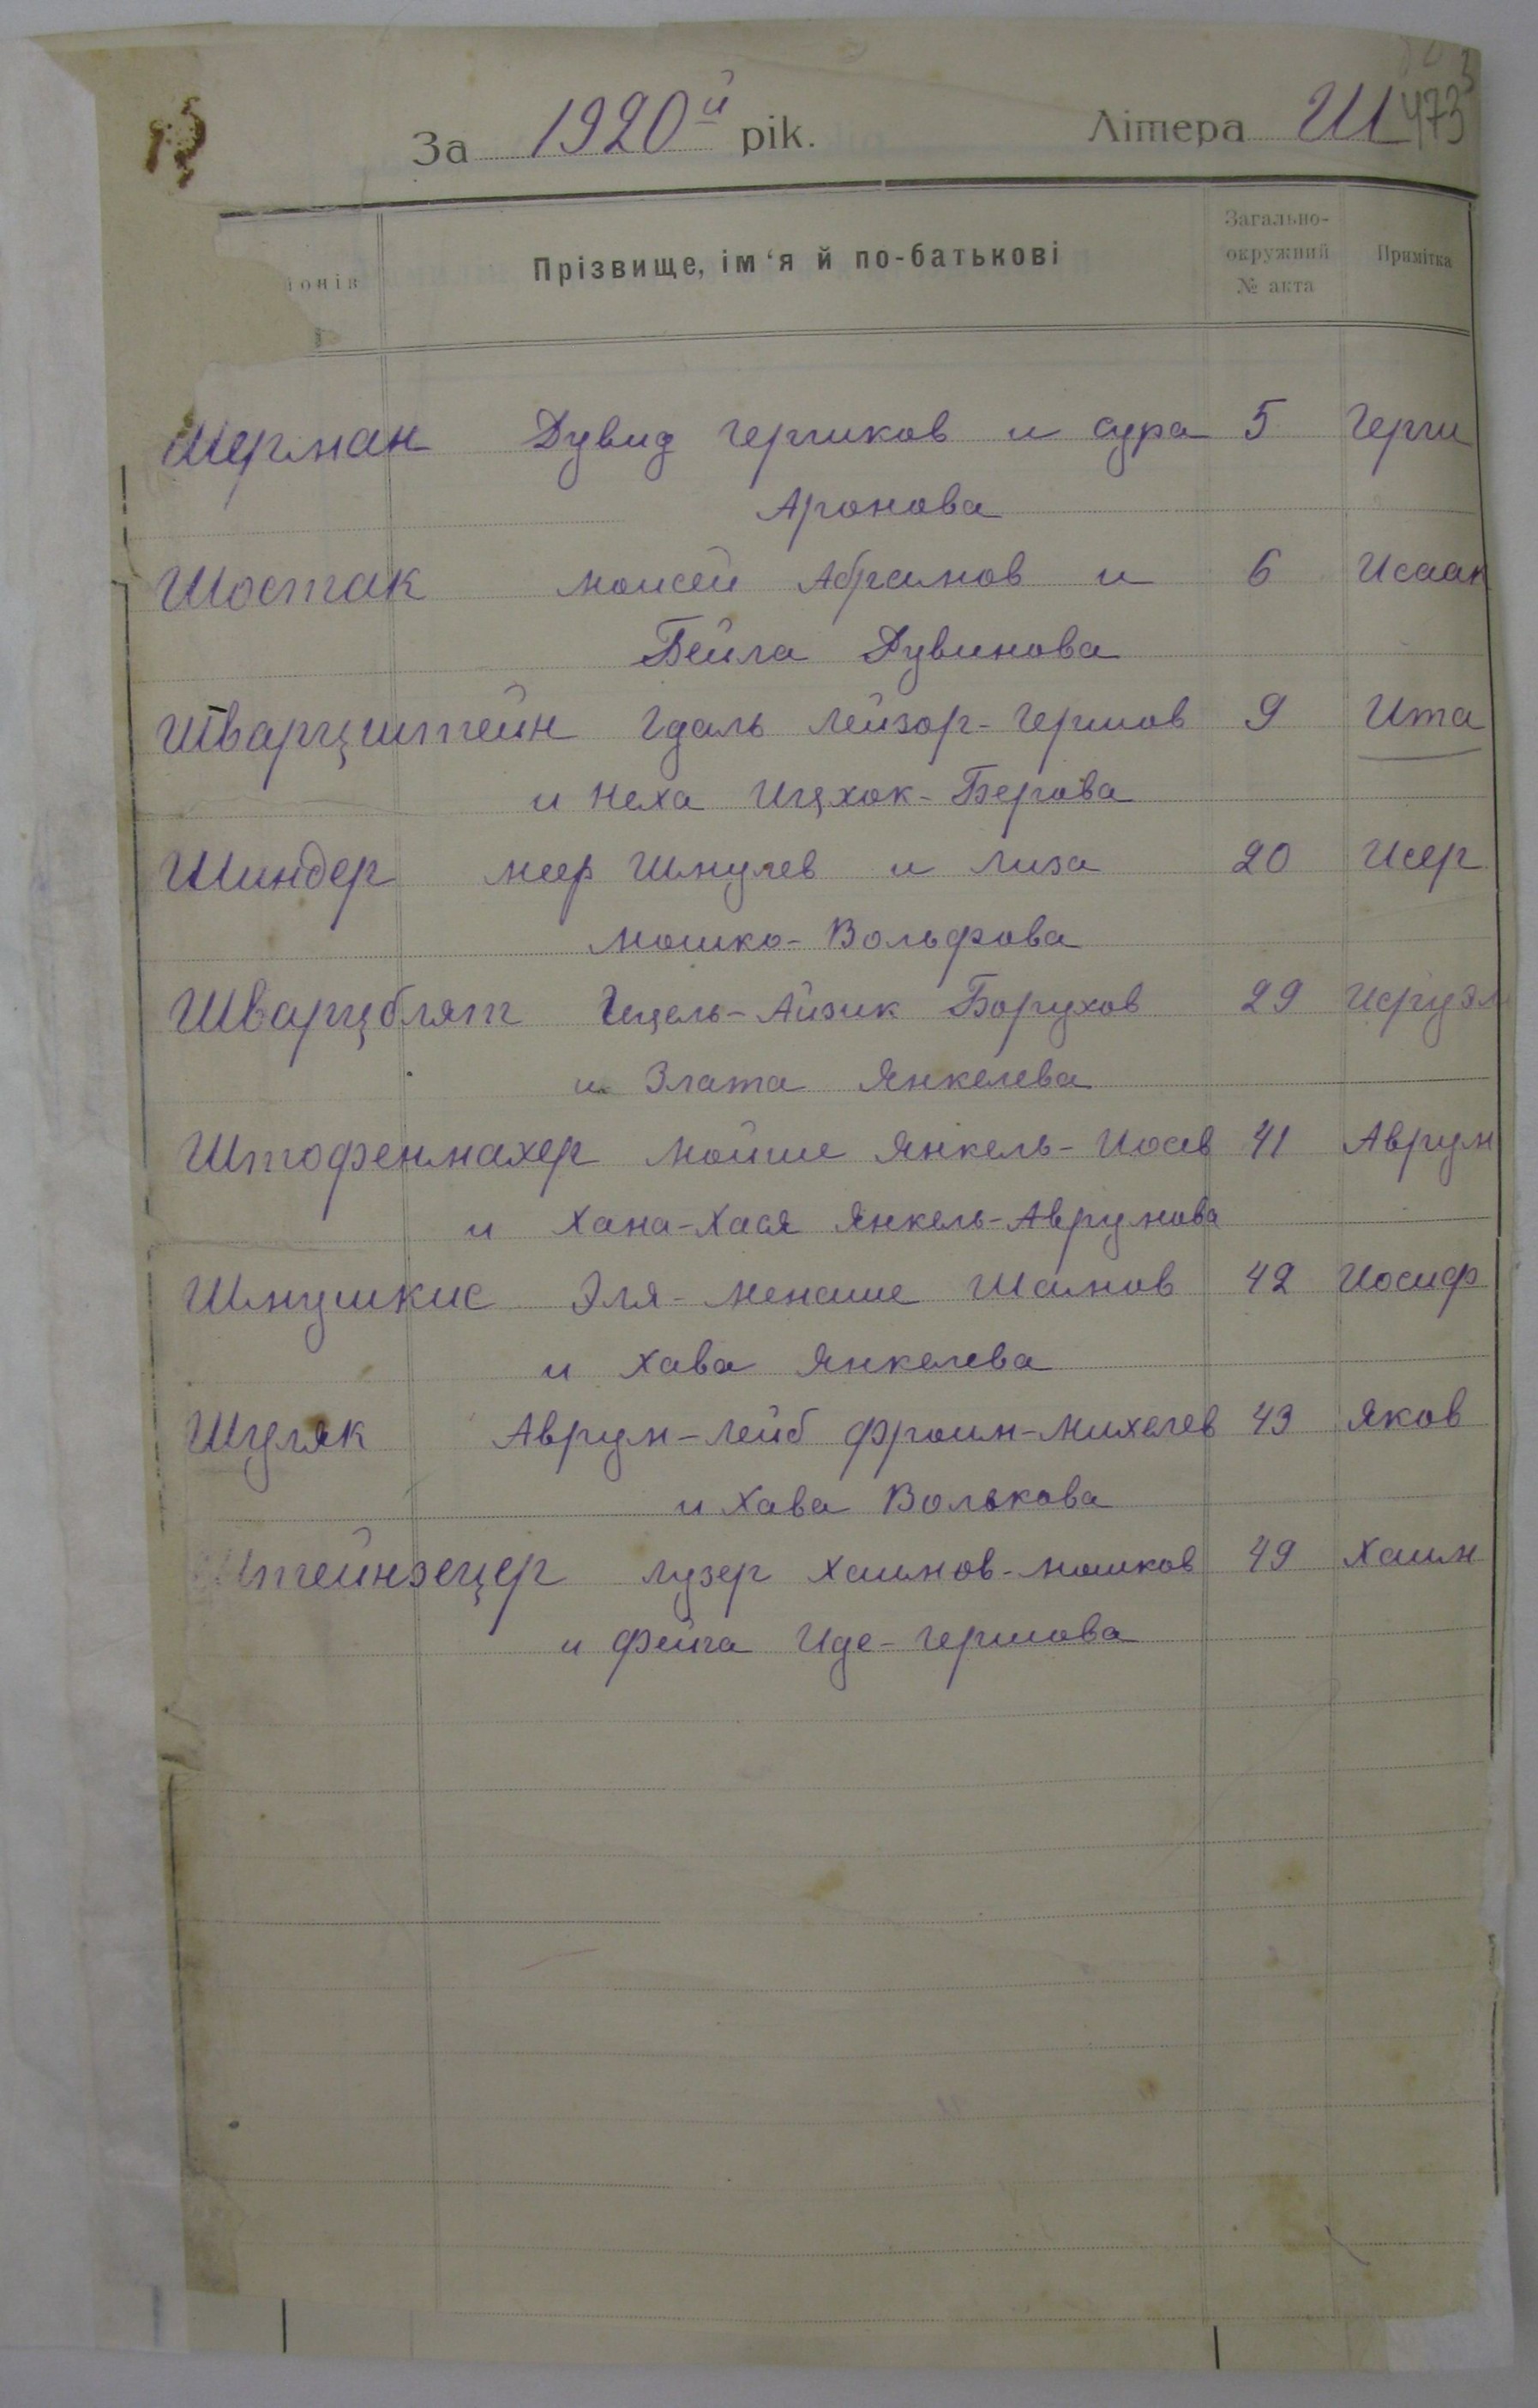 За 1920й рік. Літера Ш 473
іонів Прізвище, ім‘я й по-батькові Загально-окружний № акта Примітка
Шерман Дувид Гершков и Сура 5 Герш
Аронова
Шостак Моисей Абрамов и 6 Исаак
Бейла Дувинова
Шварцштейн Гдаль Лейзор-Гершов 9 Ита
и Неха Ицхок-Берова
Шиндер Меер Шмулев и Лиза 20 Исер
Мошко-Вольфова
Шварцблят Гецель-Айзик Борухов 29 Исруэл
и Злата Янкелева
Штофенмахер Мойше Янкель-Иосев 41 Аврум
и Хана-Хася Янкель-Аврумова
Шмушкис Эля-Менаше Шамов 42 Иосиф
и Хава Янкелева
Шуляк Аврум-Лейб Фроим-Михелев 43 Яков
и Хава Волькова
Штейнзецер Лузер Хаимов-Мошков 49 Хаим
и Фейга Иде-Гершова